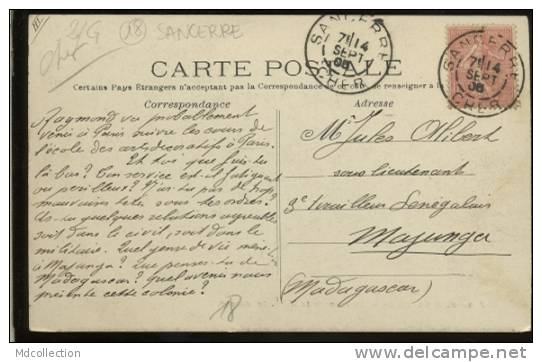 2/G (18) SANCERRE
cher
SANCERRE
7h 14
SEPT
06
CHER
SANCERRE
7h 14
SEPT
06
CHER
CARTE POSTALE
Certains Pays Etrangers n'acceptant pas la Correspondance de ce côté, se renseigner à la
Correspondance
Adresse
Raymond va probablement
venir à Paris suivre les cours de
l'école des arts décoratifs à Paris.
Et toi que fais-tu
là bas? Ton service est-il fatigant
ou périlleux? N'as-tu pas de trop
mauvaises têtes sous tes ordres?
As-tu quelques relations agréables
soit dans le civil, soit dans le
militaire. Quel genre de vie mène-t-on
à Majunga? Que penses-tu de
Madagascar? Quel avenir nous
présente cette colonie?
Mr Jules Alibert
sous lieutenant
3e tirailleurs Sénégalais
Majunga
(Madagascar)
18
Mdcollection
http://www.delcampe.net